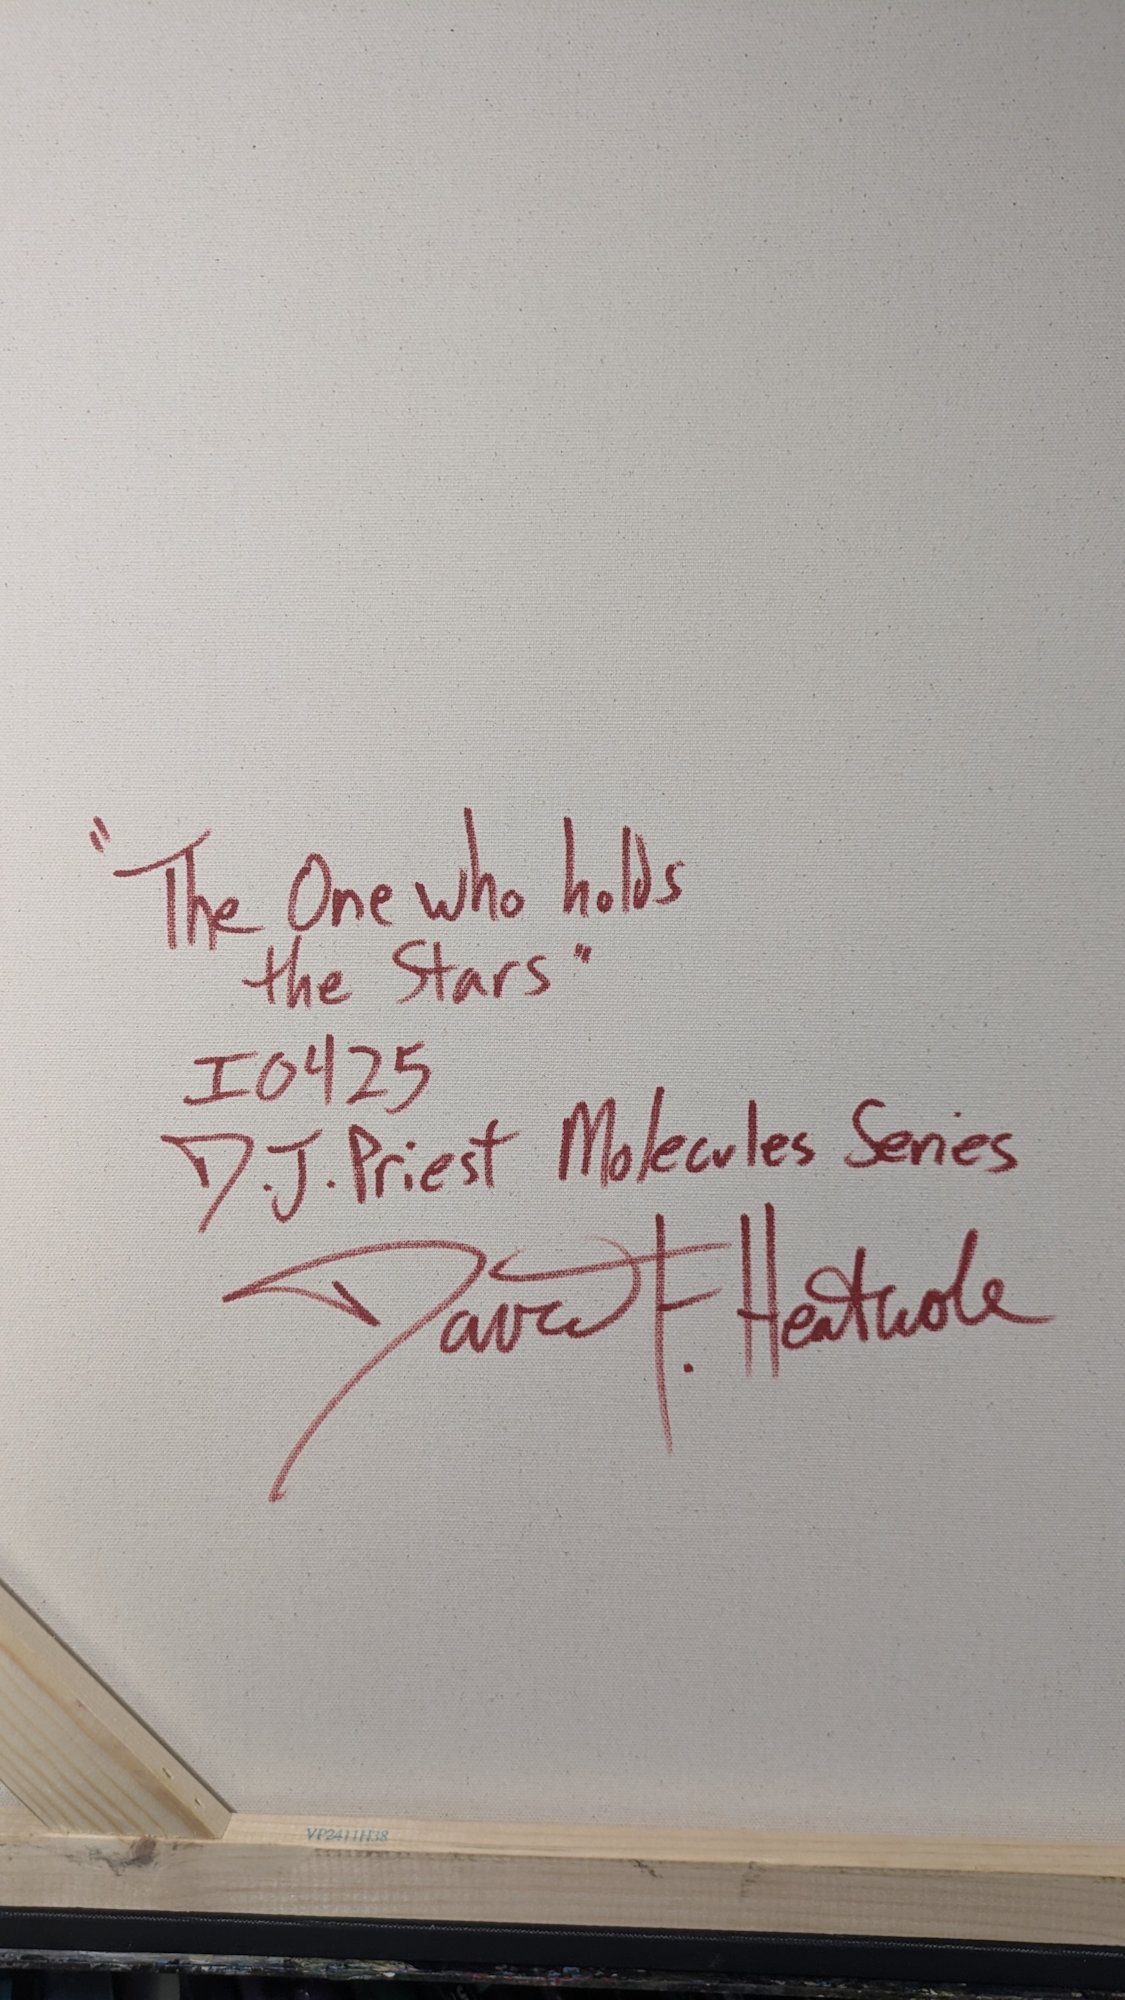 "The One who holds
the Stars"
I0425
D.J. Priest Molecules Series
David F. Heatwole
VP2411H38